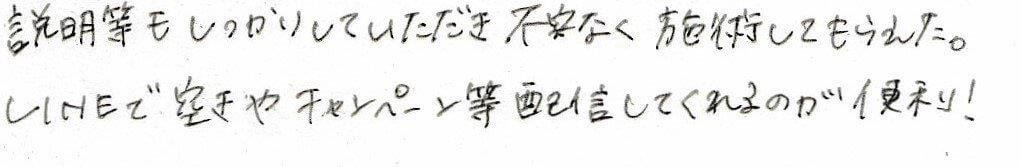 説明等もしっかりしていただき不安なく施術してもらえた。
LINEで空きやキャンペーン等配信してくれるのが便利!